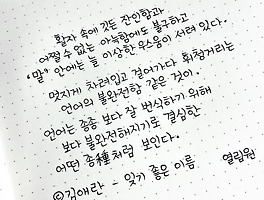 활자 속에 깃든 잔인함과
어쩔 수 없는 아늑함에도 불구하고
'말' 안에는 늘 이상한 우스움이 서려 있다.
멋지게 차려입고 걸어가다 휘청거리는
언어의 불완전함 같은 것이.
언어는 종종 보다 잘 번식하기 위해
보다 불완전해지기로 결심한
어떤 종種처럼 보인다.
©김애란 - 잊기 좋은 이름 열림원